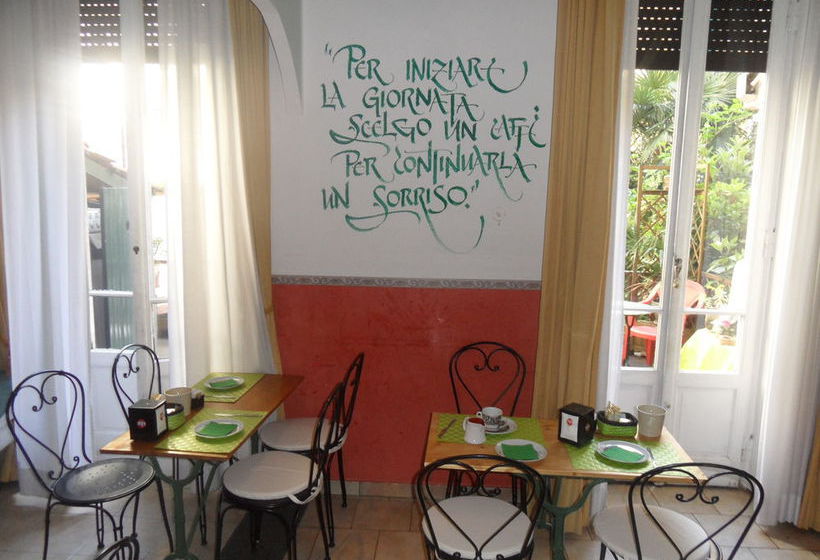 "PER INIZIARE
LA GIORNATA
SCELGO UN CAFFÈ
PER CONTINUARLA
UN SORRISO."